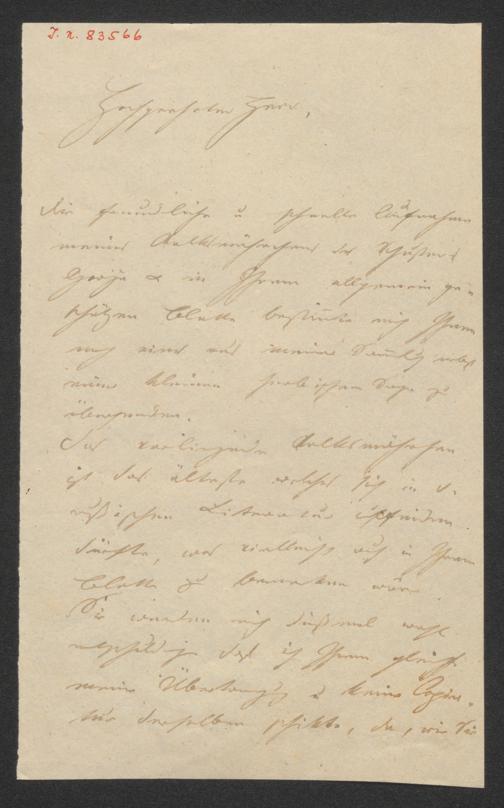 J. N. 83566
Hochgeehrter Herr,
Die freundliche u schnelle Aufnahme
meines Volksmährchens des Schusters
in Ihrem allgemein ge-
schätzten Blatte bestimte mich Ihnen
noch eines aus meiner Samlg nebst
einer kleinen serbischen Sage zu
übersenden.
Das vorliegende Volksmährchen
ist das älteste welches sich in d.
russischen Literatur
dürfte, was vielleicht auch in Ihrem
Blatte zu bemerken wäre.
Sie werden mich dießmal wohl
entschuldigen daß ich Ihnen gleich
meine Übersetzung u keine Copia-
tur derselben schikte, da, wie Sie